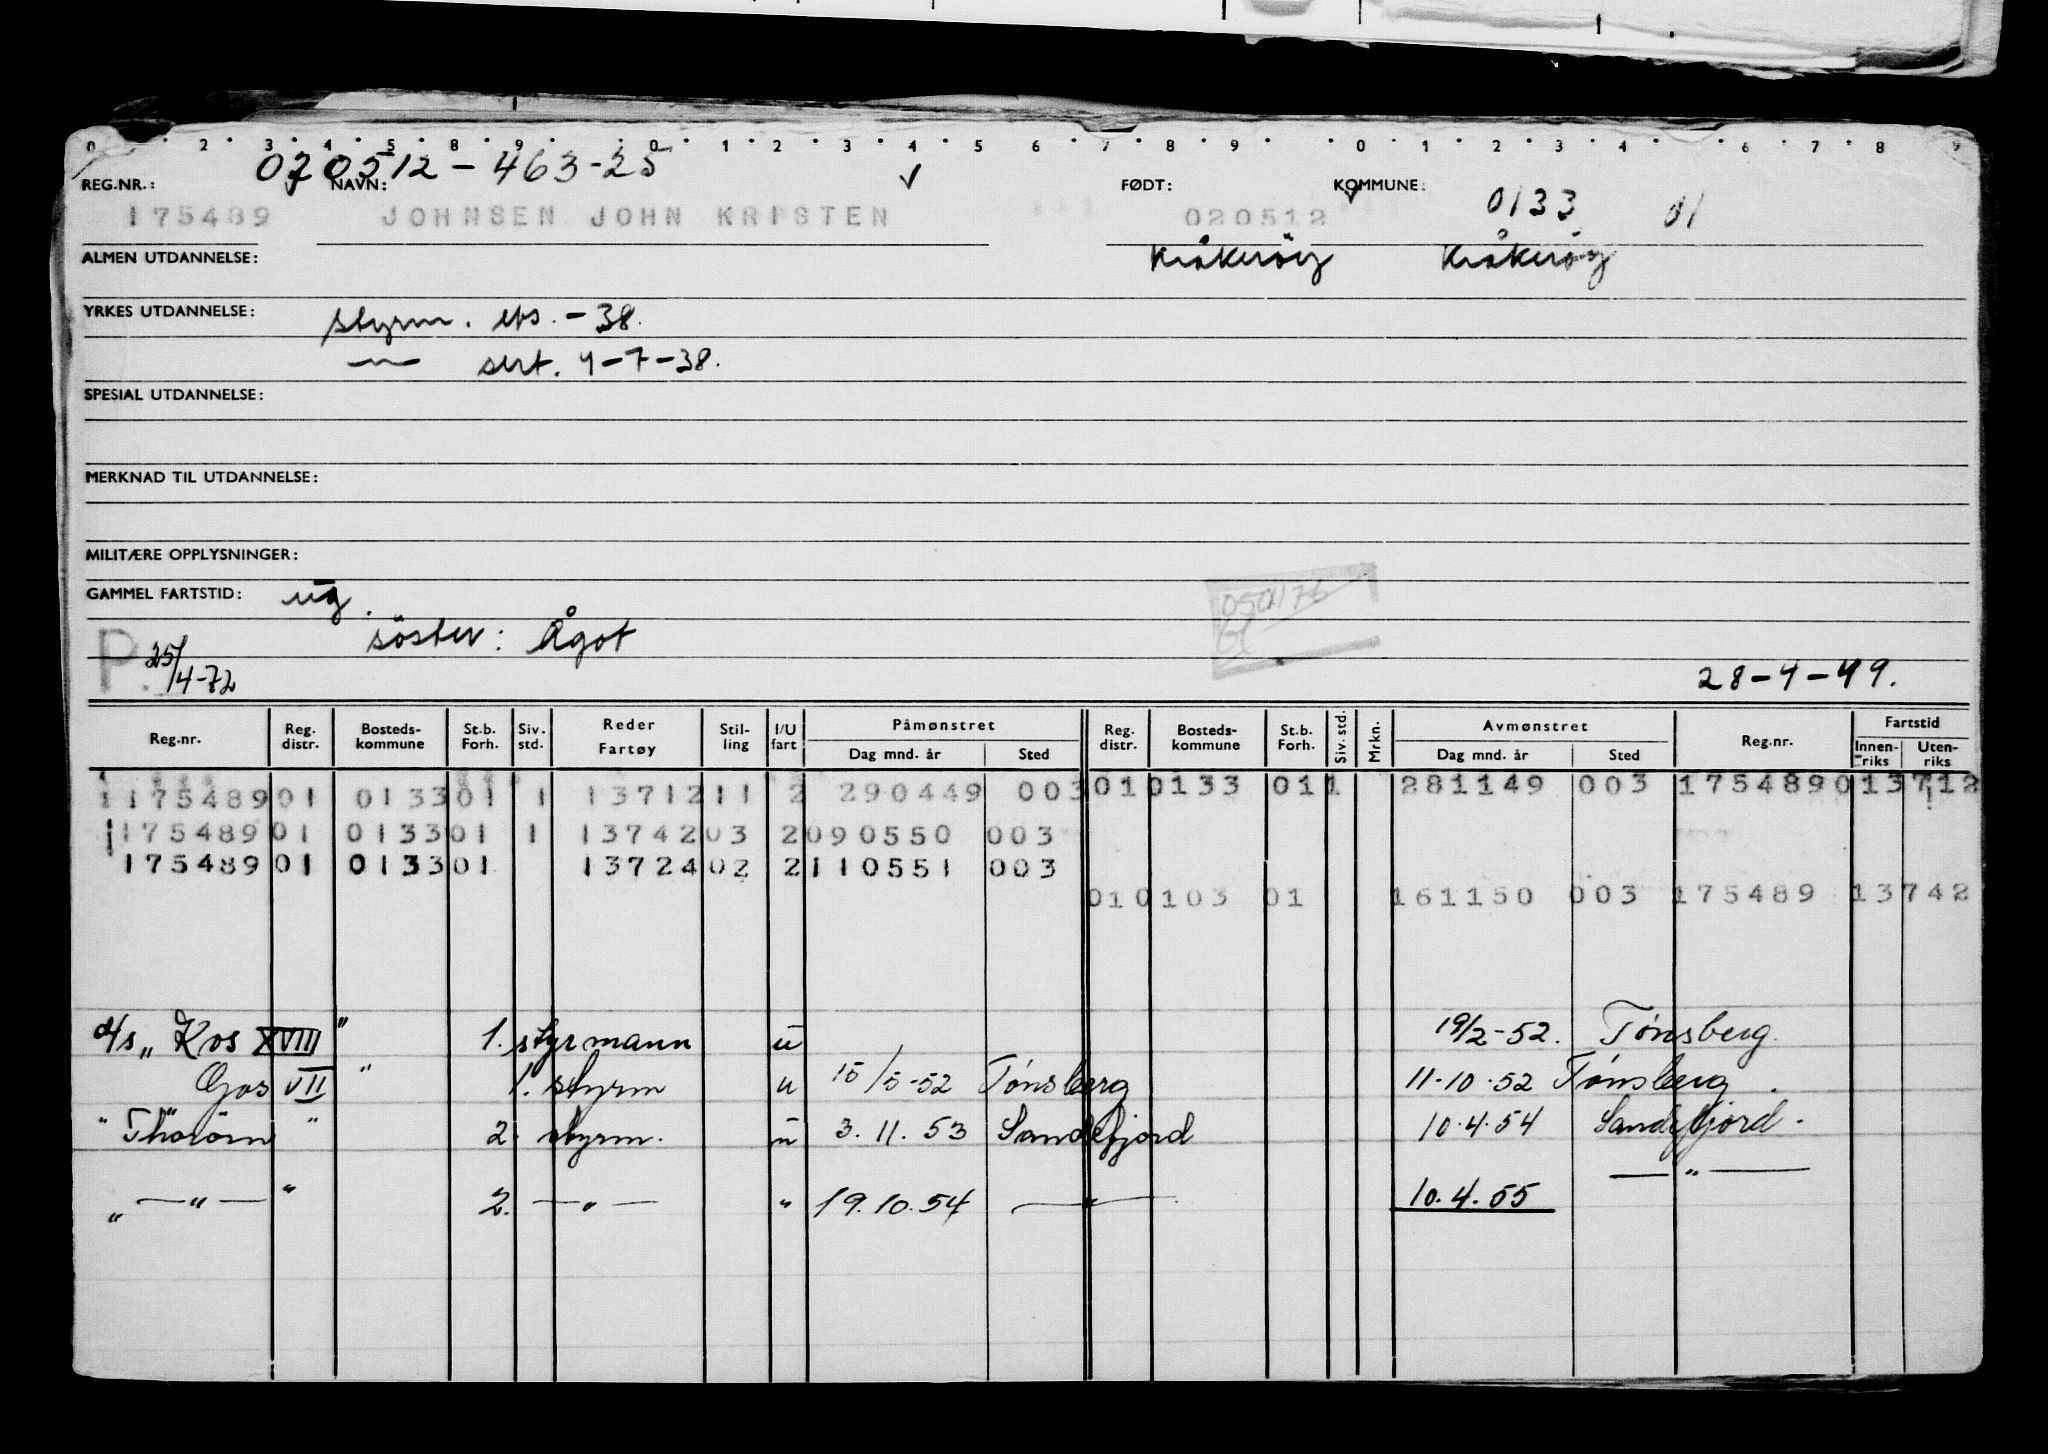 0 2 3 4 5 8 9 0 1 2 3 4 5 6 7 8 9 0 1 2 3 4 6 7 8 9
020512-463-25
REG.NR.: NAVN: FØDT: KOMMUNE:
175489 JOHNSEN JOHN KRISTEN 020512 0133 01
ALMEN UTDANNELSE: Kråkerøy Kråkerøy
YRKES UTDANNELSE: styrm. eks. - 38.
— sert. 4-7-38.
SPESIAL UTDANNELSE:
MERKNAD TIL UTDANNELSE:
MILITÆRE OPPLYSNINGER:
GAMMEL FARTSTID: ug.
söster: Ågot
P. 25/4-72
28-4-49.
Reg.nr. Reg. distr. Bosteds-kommune St.b. Forh. Siv. std. Reder Fartøy Stil-ling I/U fart Påmønstret Dag mnd. år Sted Reg. distr. Bosteds-kommune St.b. Forh. Siv. std. Mrkn. Avmønstret Dag mnd. år Sted Reg.nr. Fartstid Innen-riks Uten-riks
1175489 01 0133 01 1 13712 11 2 290449 003 01 0133 01 1 281149 003 175489 0 13712
175489 01 0133 01 1 13742 03 2 090550 003
175489 01 0133 01 13724 02 2 110551 003
01 0103 01 161150 003 175489 13742
d/s „ Kos XVIII " 1. styrmann u 19/2-52. Tønsberg.
Gos VII " 1. styrm u 15/5-52 Tønsberg 11-10-52 Tønsberg.
" Thorörn " 2. styrm. u 3.11.53 Sandefjord 10.4.54 Sandefjord.
" — " — " 2. — " — " 19.10.54 — " — 10.4.55 — " —